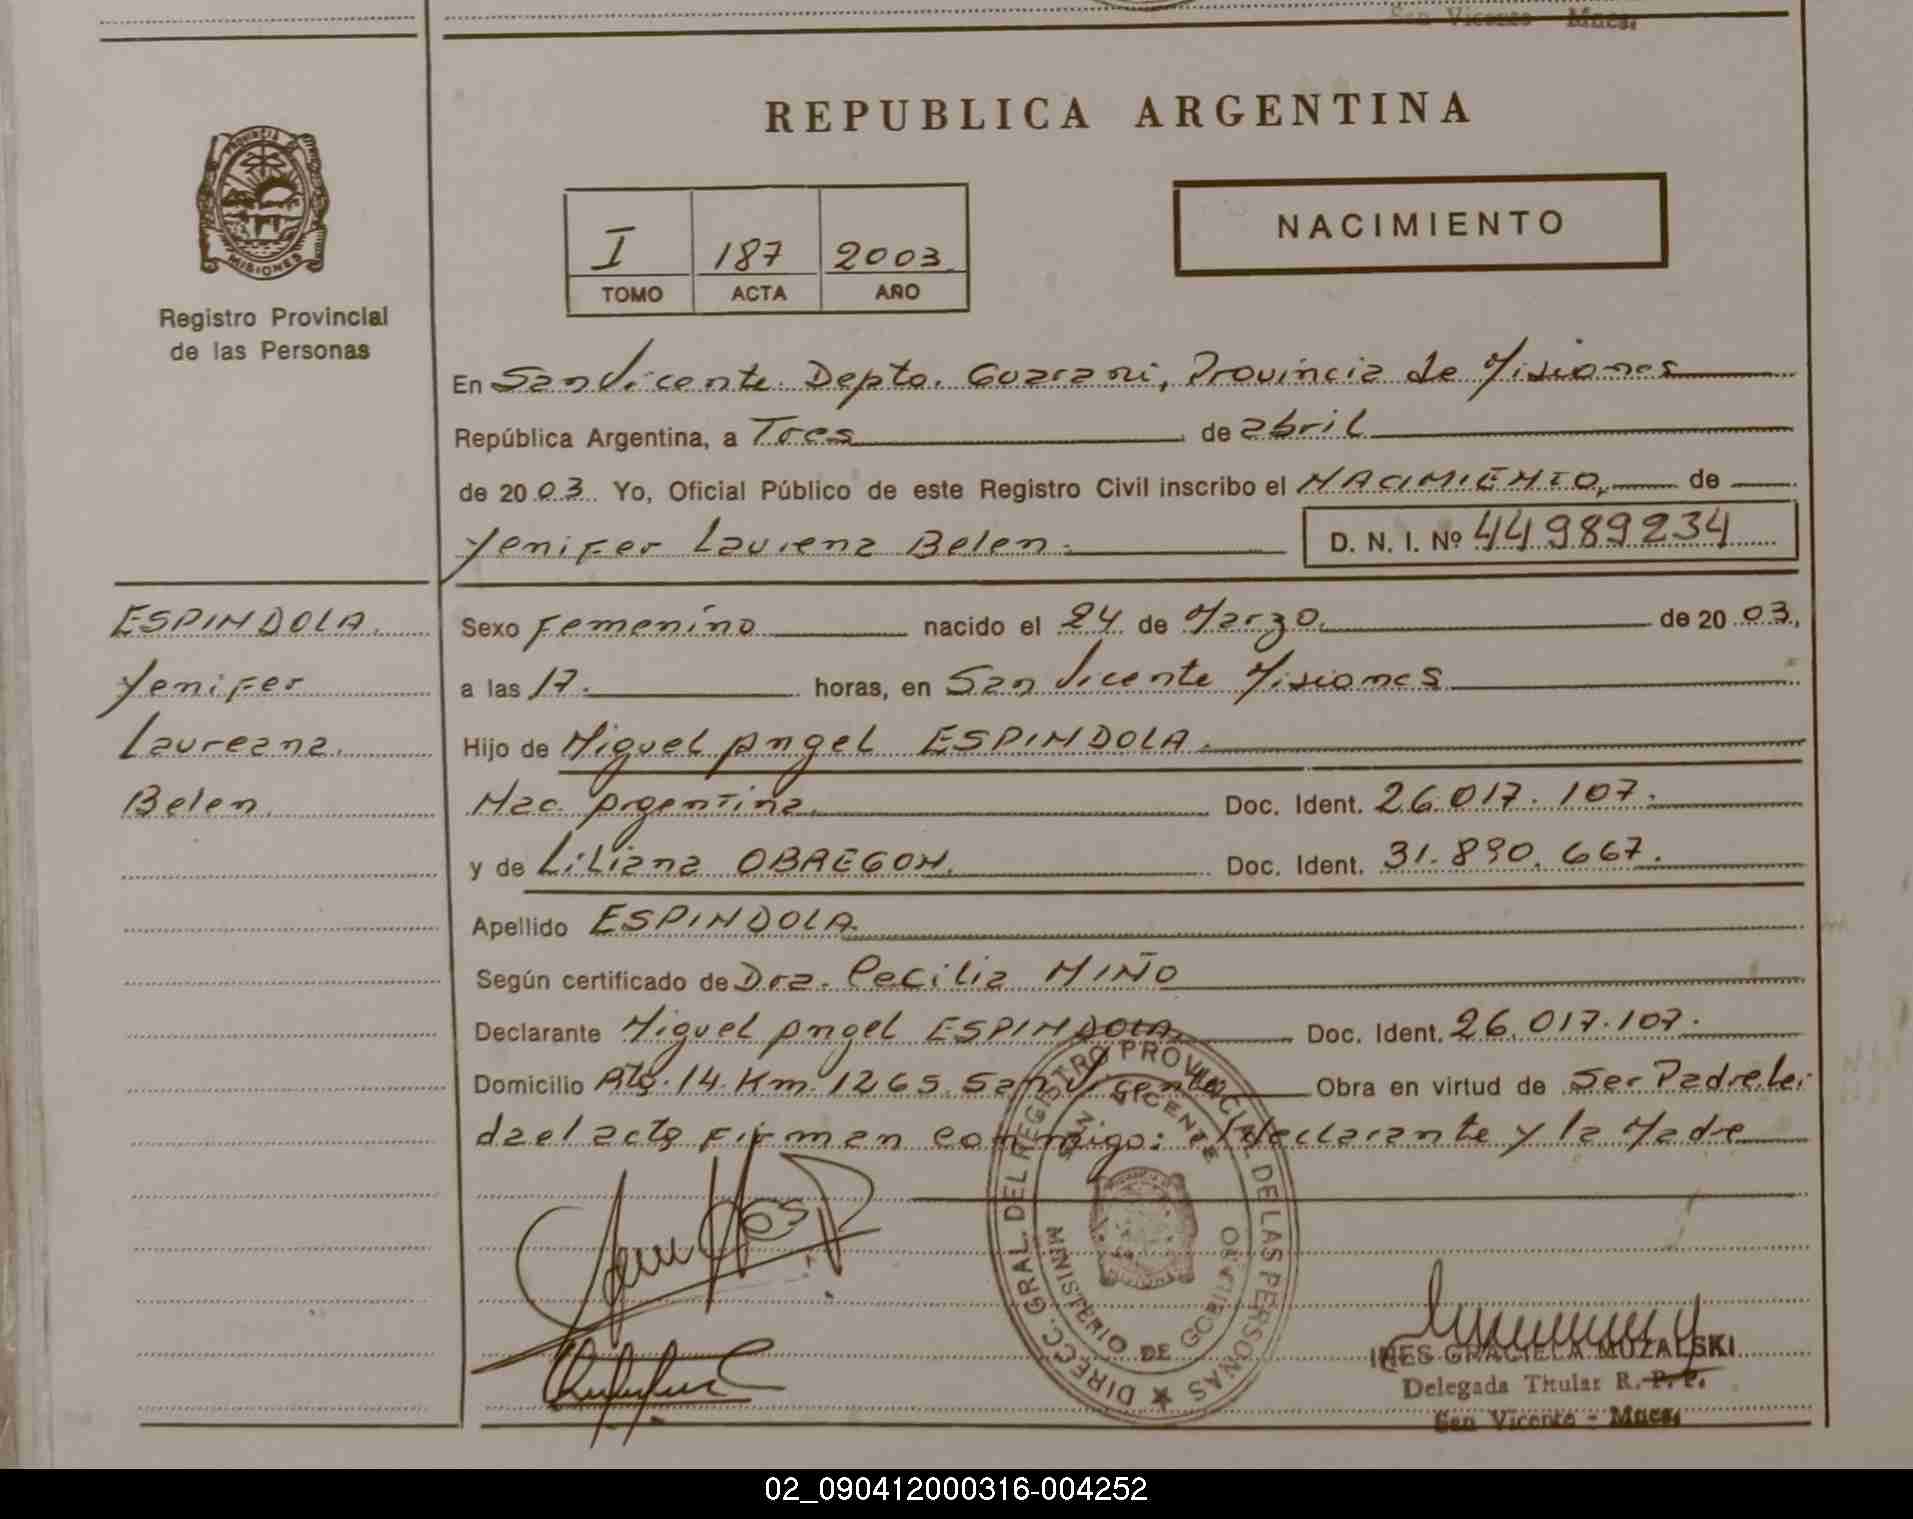 San Vicente Mnes.
REPUBLICA ARGENTINA
PROVINCIA DE
MISIONES
Registro Provincial
de las Personas
I 187 2003
TOMO ACTA AÑO
NACIMIENTO
En San Vicente Depto. Guarani, Provincia de Misiones
República Argentina, a Tres de abril
de 20 03 Yo, Oficial Público de este Registro Civil inscribo el NACIMIENTO, de
Yenifer Laureana Belen. D. N. I. Nº 44989234
ESPINDOLA
Yenifer
Laureana
Belen
Sexo Femenino nacido el 24 de Marzo de 20 03,
a las 17. horas, en San Vicente Misiones
Hijo de Miguel Angel ESPINDOLA.
Nac. Argentina. Doc. Ident. 26.017.107.
y de Liliana OBREGON. Doc. Ident. 31.890.667.
Apellido ESPINDOLA
Según certificado de Dra. Cecilia MIÑO
Declarante Miguel Angel ESPINDOLA. Doc. Ident. 26.017.107.
Domicilio Rta. 14. Km. 1265. San Vicente Obra en virtud de Ser Padre leí
da el acta firman conmigo: el declarante y la Madre
DIRECC. GRAL. DEL REGISTRO PROVINCIAL DE LAS PERSONAS
SAN VICENTE
MINISTERIO DE GOBIERNO
INES GRACIELA MUZALSKI
Delegada Titular R. P. P.
San Vicente - Mnes.
02_090412000316-004252